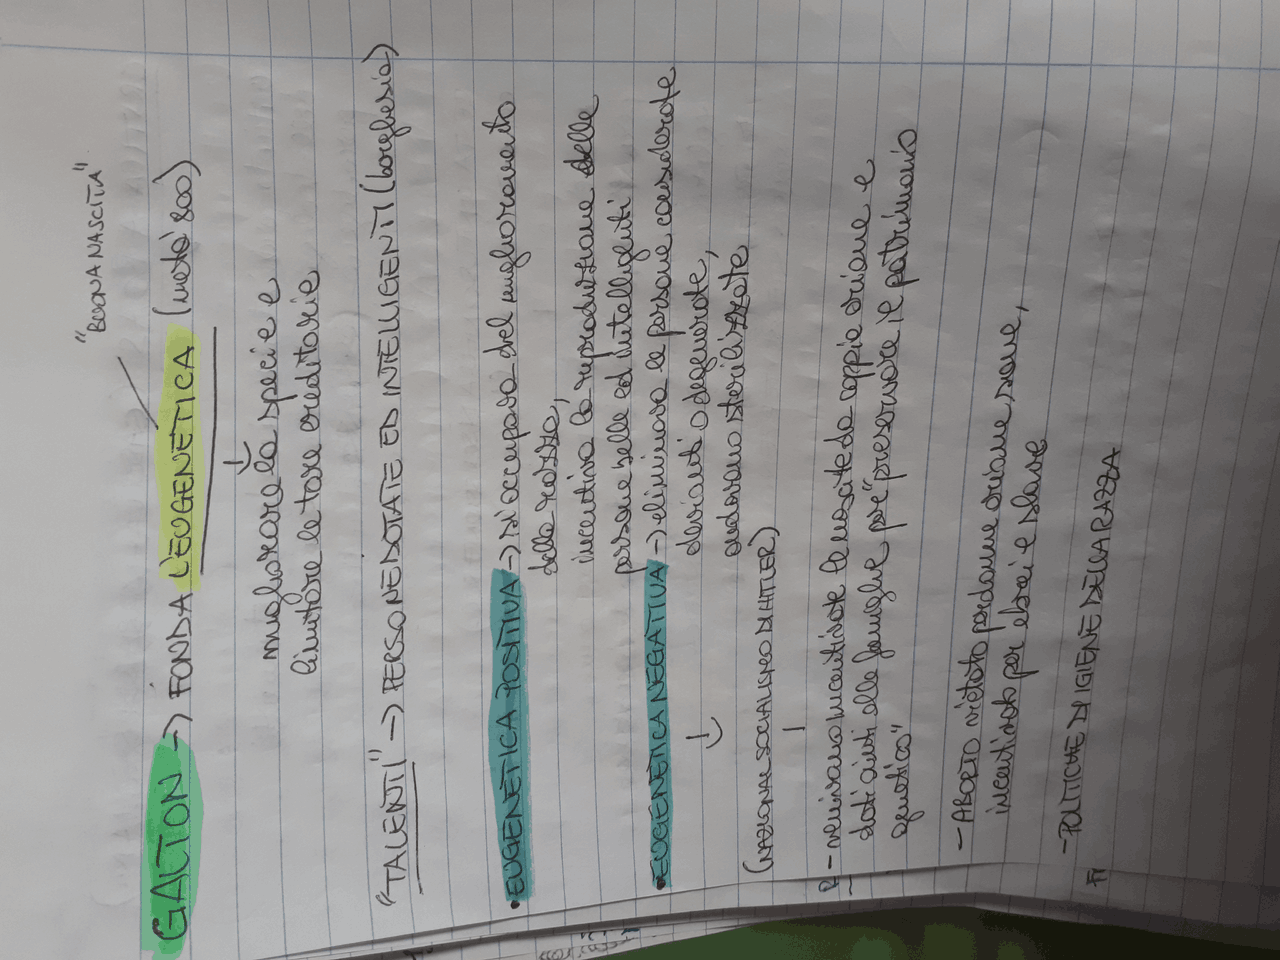 "BUONA NASCITA"
GALTON → FONDA L'EUGENETICA (metà '800)
migliorare la specie e
limitare le tare ereditarie
"TALENTI" → PERSONE DOTATE ED INTELLIGENTI (borghesia)
• EUGENETICA POSITIVA → si occupava del miglioramento
della razza,
incentiva la riproduzione delle
persone belle ed intelligenti
• EUGENETICA NEGATIVA → eliminava le persone considerate
devianti o degenerate,
andavano sterilizzate
(NAZIONALSOCIALISMO DI HITLER)
- venivano incentivate le nascite da coppie ariane e
dati aiuti alle famiglie per "preservare il patrimonio
genetico"
- ABORTO vietato per donne ariane, sane,
incentivato per ebrei e slave
- POLITICHE DI IGIENE DELLA RAZZA